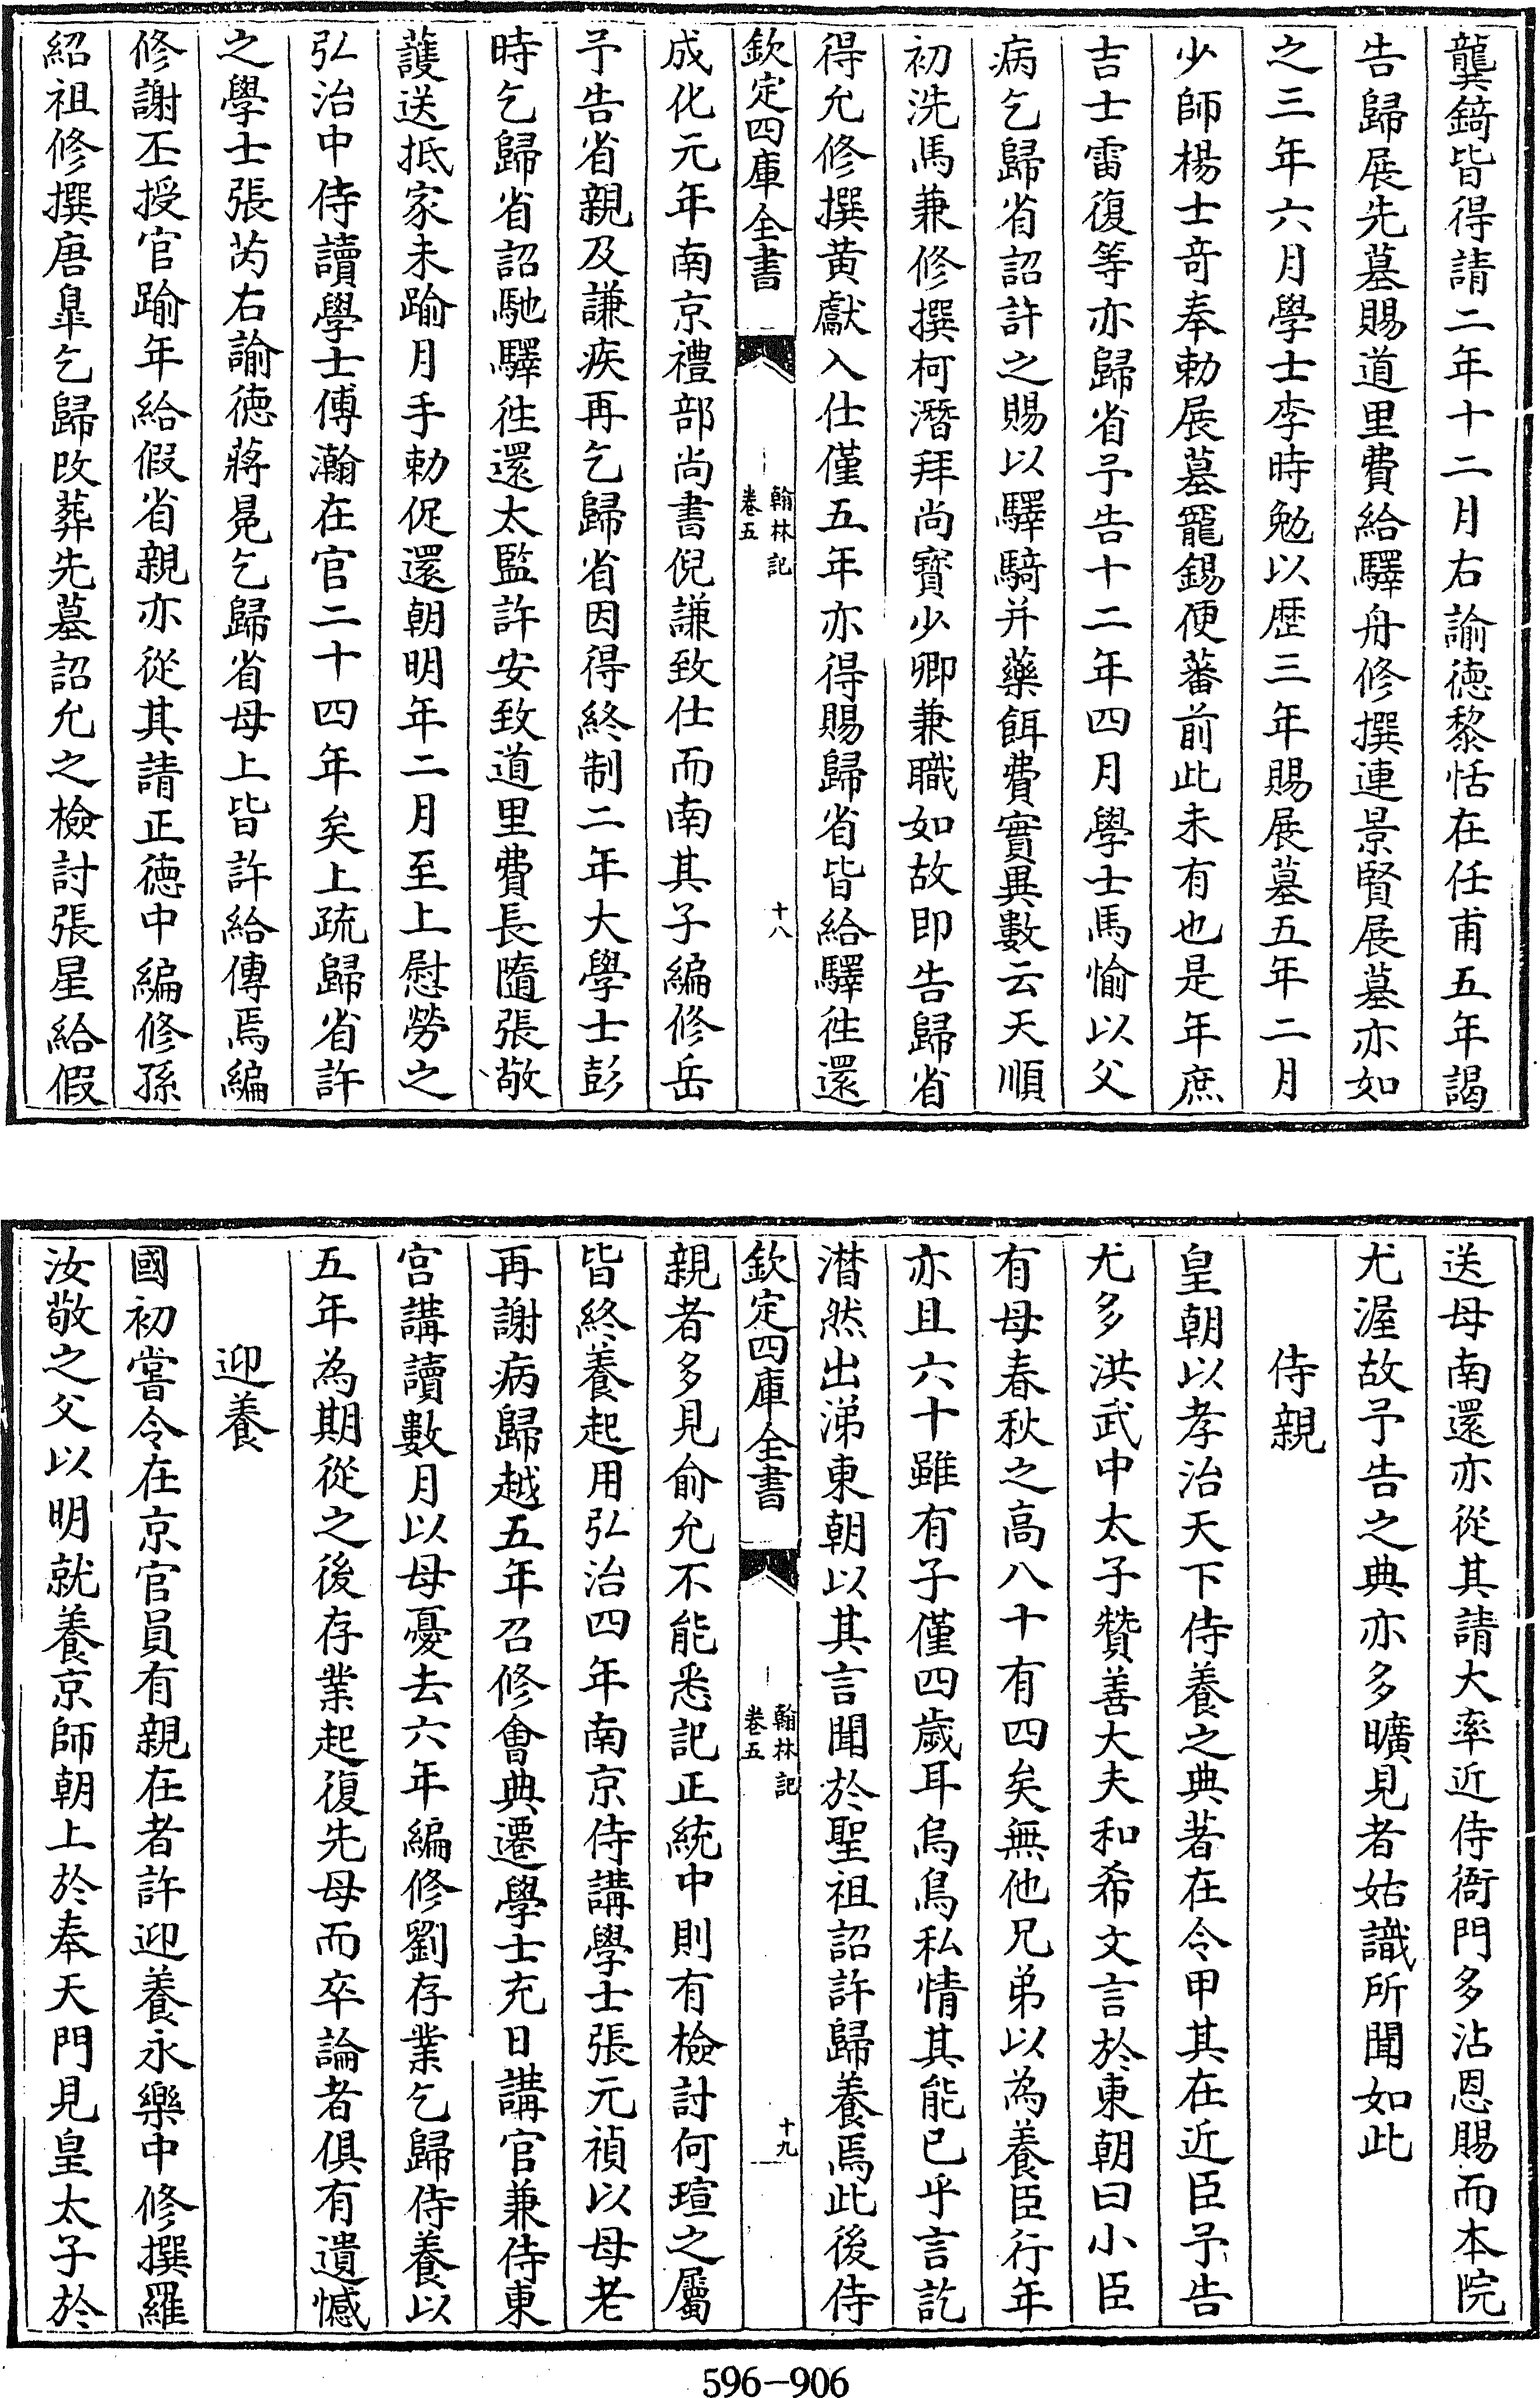 龔錡皆得請二年十二月右諭徳黎恬在任甫五年謁
告歸展先墓賜道里費給驛舟修撰連景賢展墓亦如
之三年六月學士李時勉以歴三年賜展墓五年二月
少師楊士竒奉勅展墓寵錫便蕃前此未有也是年庶
吉士雷復等亦歸省予告十二年四月學士馬愉以父
病乞歸省詔許之賜以驛騎并藥餌費實異數云天順
初洗馬兼修撰柯潛拜尚寳少卿兼職如故即告歸省
得允修撰黄獻入仕僅五年亦得賜歸省皆給驛徃還
欽定四庫全書
翰林記
卷五
十八
成化元年南京禮部尚書倪謙致仕而南其子編修岳
予告省親及謙疾再乞歸省因得終制二年大學士彭
時乞歸省詔馳驛徃還太監許安致道里費長隨張敬
護送抵家未踰月手勅促還朝明年二月至上慰勞之
弘治中侍讀學士傅瀚在官二十四年矣上疏歸省許
之學士張芮右諭徳蔣冕乞歸省母上皆許給傳焉編
修謝丕授官踰年給假省親亦從其請正徳中編修孫
紹祖修撰唐臯乞歸改葬先墓詔允之檢討張星給假
送母南還亦從其請大率近侍衙門多沾恩賜而本院
尤渥故予告之典亦多曠見者姑識所聞如此
侍親
皇朝以孝治天下侍養之典著在令甲其在近臣予告
尤多洪武中太子贊善大夫和希文言於東朝曰小臣
有母春秋之高八十有四矣無他兄弟以為養臣行年
亦且六十雖有子僅四歳耳烏鳥私情其能已乎言訖
潸然出涕東朝以其言聞於聖祖詔許歸養焉此後侍
欽定四庫全書
翰林記
卷五
十九
親者多見俞允不能悉記正統中則有檢討何瑄之屬
皆終養起用弘治四年南京侍講學士張元禎以母老
再謝病歸越五年召修會典遷學士充日講官兼侍東
宫講讀數月以母憂去六年編修劉存業乞歸侍養以
五年為期從之後存業起復先母而卒論者俱有遺憾
迎養
國初嘗令在京官員有親在者許迎養永樂中修撰羅
汝敬之父以明就養京師朝上於奉天門見皇太子於
596-906